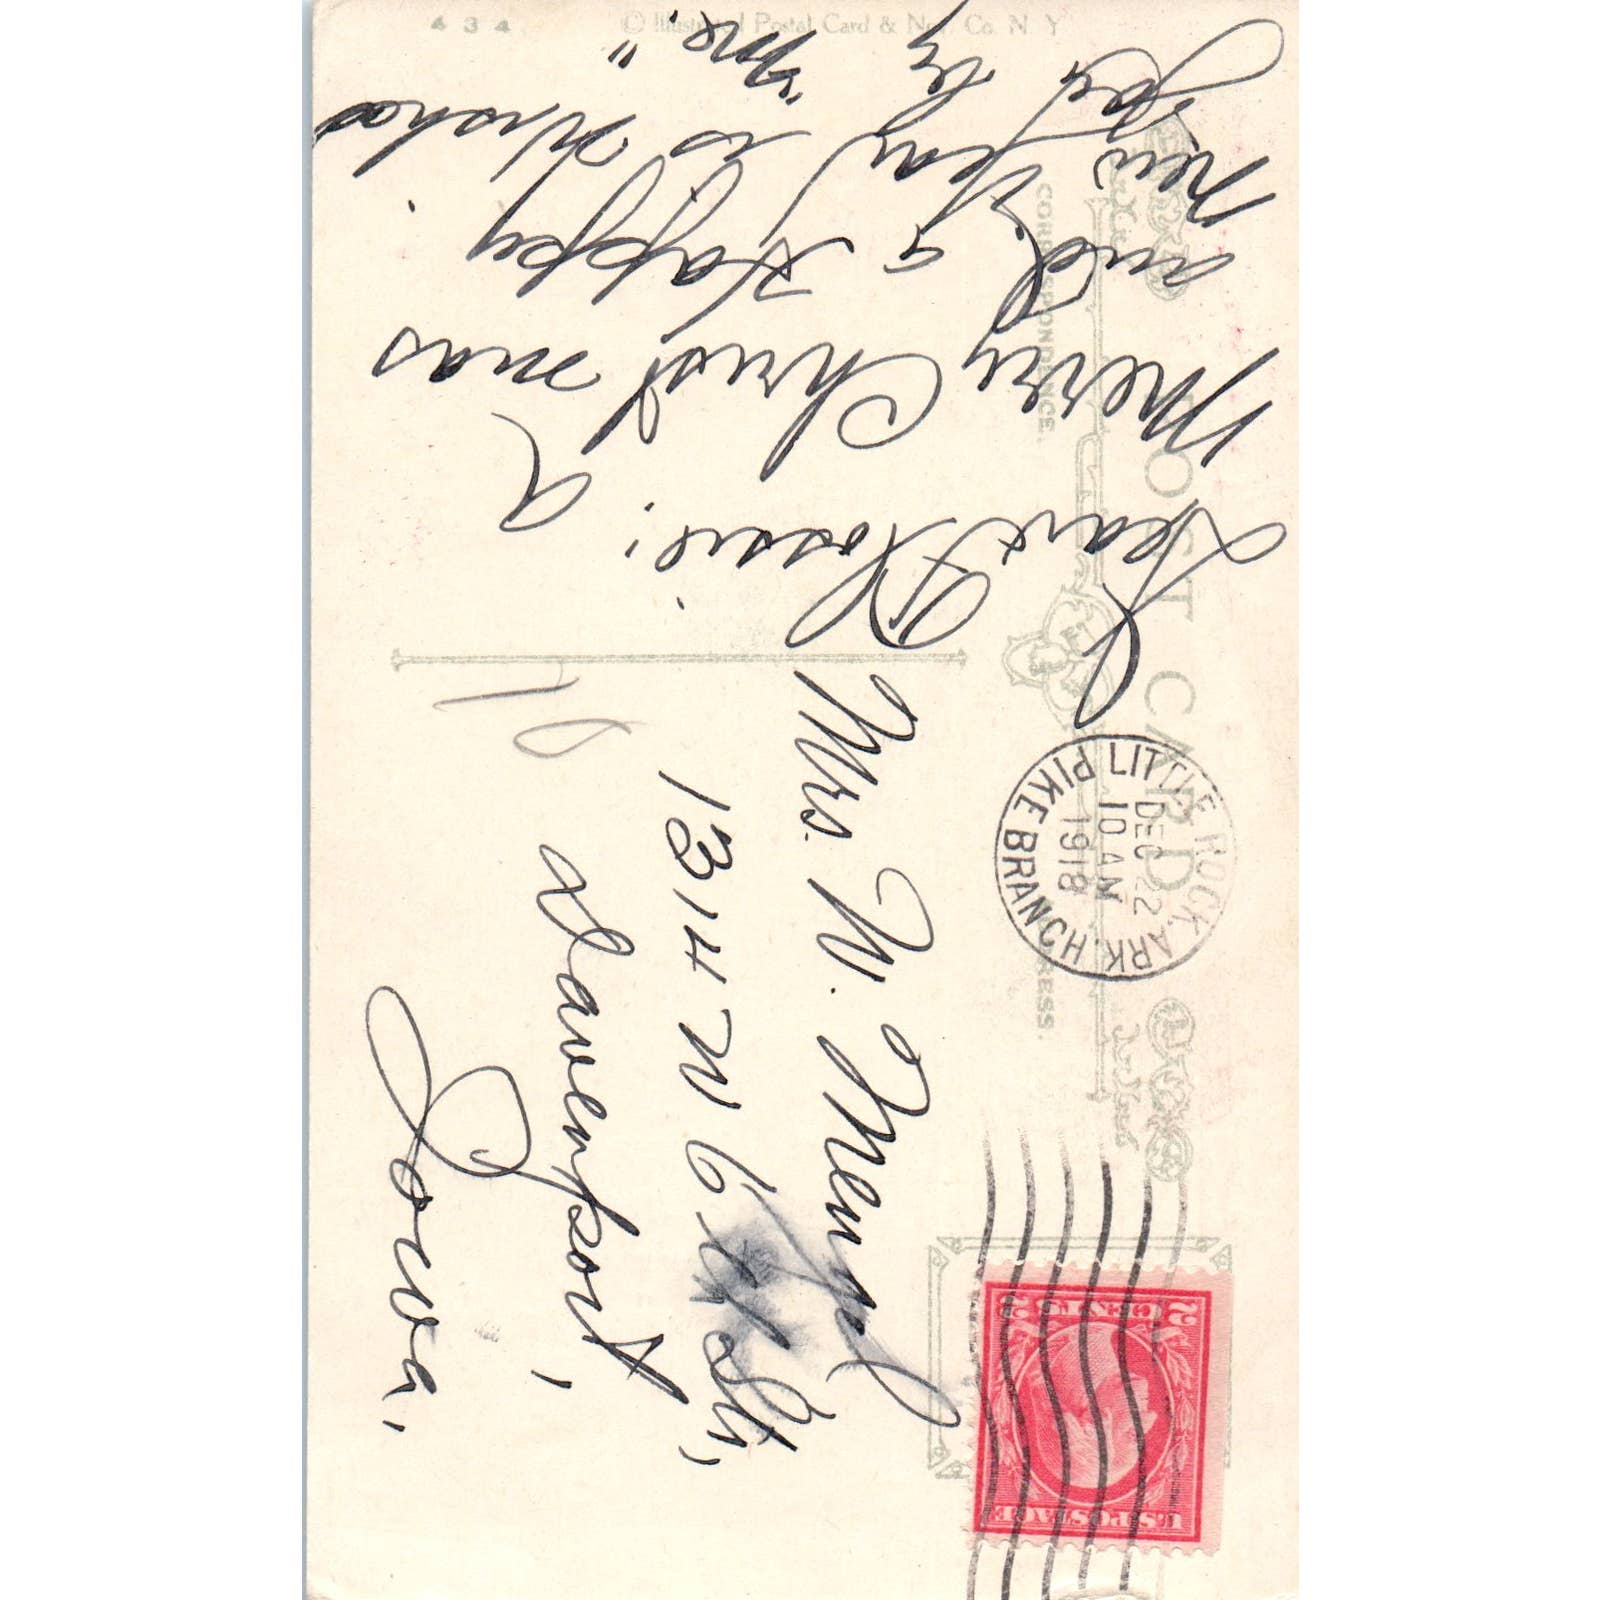 434
© Illustrated Postal Card & Nov. Co. N. Y
POST CARD
CORRESPONDENCE.
ADDRESS.
LITTLE ROCK, ARK.
PIKE BRANCH.
DEC 22
10 AM
1918
U.S. POSTAGE
2 CENTS 2
Dear Flossie: A
Merry Christmas
and a Happy
New Year is wished
you by "me."
Mrs. W. Mengel
1314 W 6th St,
Davenport,
Iowa,